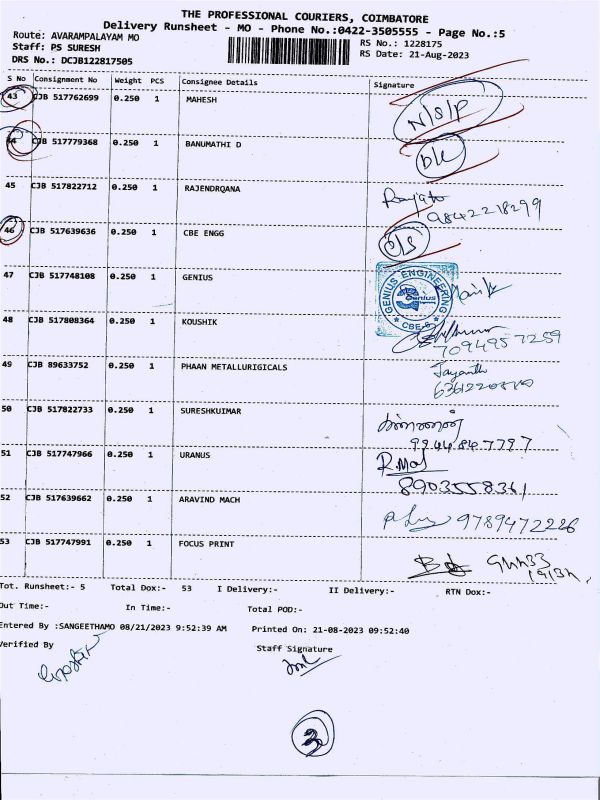 THE PROFESSIONAL COURIERS, COIMBATORE
Delivery Runsheet - MO - Phone No.:0422-3505555 - Page No.:5
Route: AVARAMPALAYAM MO
RS No.: 1228175
Staff: PS SURESH
RS Date: 21-Aug-2023
DRS No.: DCJB122817505
S No Consignment No: Weight PCS Consignee Details Signature
43 CJB 517762699 0.250 1 MAHESH N/S/P
44 CJB 517779368 0.250 1 BANUMATHI D D/L
45 CJB 517822712 0.250 1 RAJENDRQANA
9842218299
46 CJB 517639636 0.250 1 CBE ENGG C/S
47 CJB 517748108 0.250 1 GENIUS
GENIUS ENGINEERING
Genius
CBE-6
48 CJB 517808364 0.250 1 KOUSHIK
7094957259
49 CJB 89633752 0.250 1 PHAAN METALLURIGICALS Jayanthi
50 CJB 517822733 0.250 1 SURESHKUIMAR
9944847797
51 CJB 517747966 0.250 1 URANUS R.Mal
8903558361
52 CJB 517639662 0.250 1 ARAVIND MACH 9789472226
53 CJB 517747991 0.250 1 FOCUS PRINT
Tot. Runsheet:- 5 Total Dox:- 53 I Delivery:- II Delivery:- RTN Dox:-
Out Time:- In Time:- Total POD:-
Entered By :SANGEETHAMO 08/21/2023 9:52:39 AM Printed On: 21-08-2023 09:52:40
Verified By Staff Signature
3